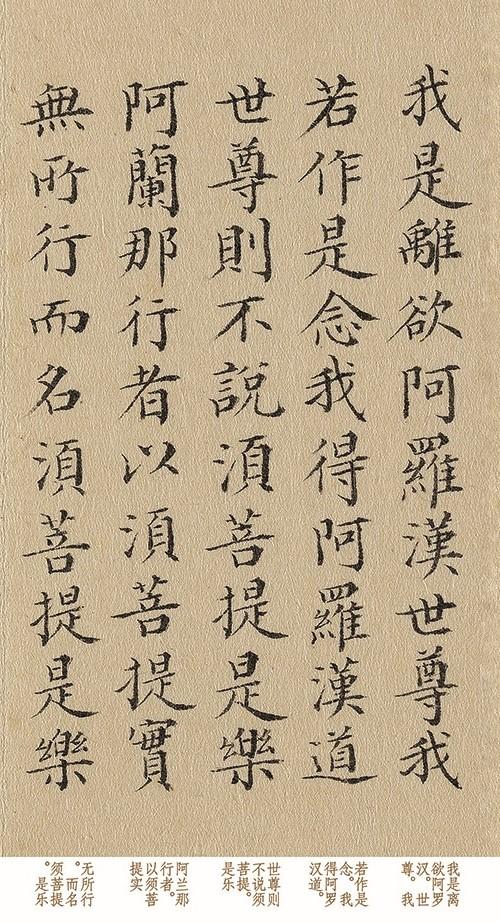 我是離欲阿羅漢世尊我
若作是念我得阿羅漢道
世尊則不說湏菩提是樂
阿蘭那行者以湏菩提實
無所行而名湏菩提是樂
我是离
欲阿罗
汉。世
尊。我
若作是
念。我
得阿罗
汉道。
世尊则
不说须
菩提。
是乐
阿兰那
行者。
以须菩
提实
无所行
。而名
须菩提
。是乐